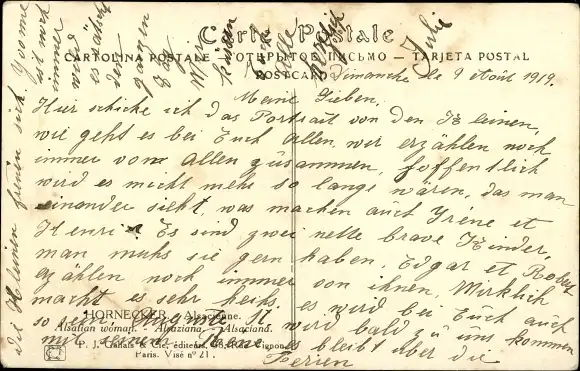 Carte Postale
CARTOLINA POSTALE — ОТКРЫТОЕ ПИСЬМО — TARJETA POSTAL
POSTCARD
Dimanche le 9 Août 1919.
Meine Lieben,
Hier schicke ich das Portrait von den Kleinen,
wie geht es bei Euch allen, wir erzählen noch
immer vom Allen zusammen, hoffentlich
wird es nicht mehr so lange wären, das man
einander sieht, was machen auch Yréne et
Henri. Es sind zwei nette brave Kinder,
man muhs sie gern haben, Edgar et Robert
erzählen noch immer von ihnen. Wirklich
macht es sehr heihs, es wird bei Euch auch
so sein. wird bald zu uns kommen
mit seinem es bleibt über die
Ferien
HORNECKER. Alsacienne.
Alsatian woman. Alsaziana. Alsaciana.
P. J. Gallais & Cie, éditeurs, 38, Rue Vignon
Paris. Visé nº 21.
die Kleinen freuen sich. Yvonne
immer
den ganzen Tag
Wir küssen
Julie